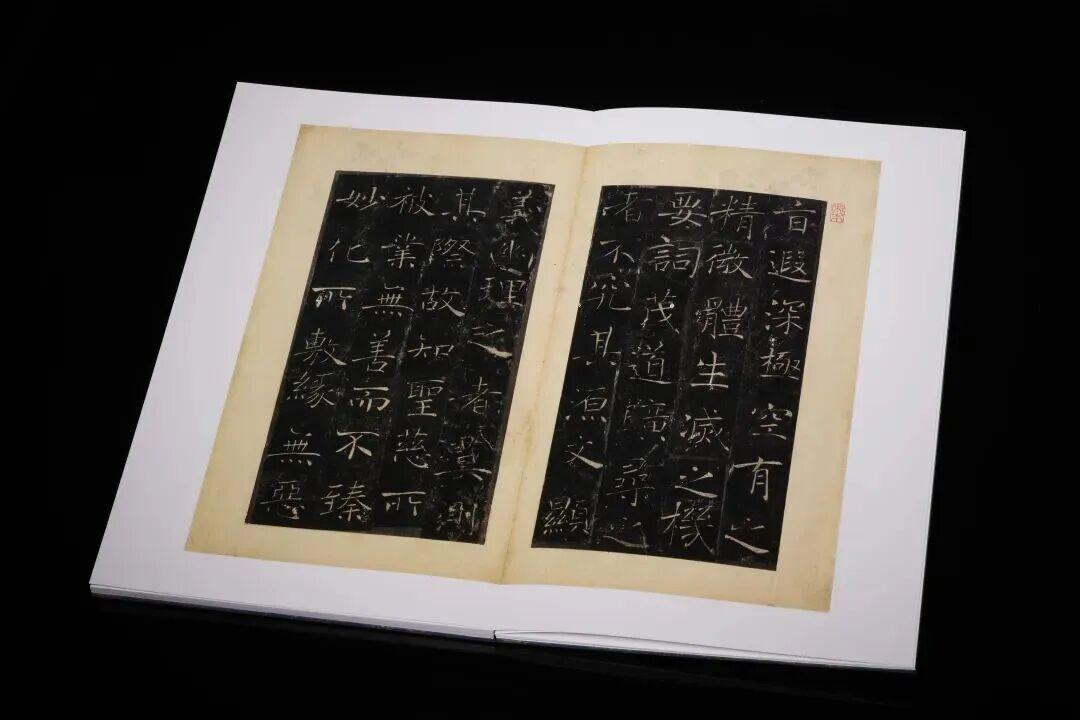 旨遐深極空有之
精微體生滅之機
要詞茂道曠尋之
者不究其源文顯
義幽理之者莫測
其際故知聖慈所
被業無善而不臻
妙化所敷緣無惡